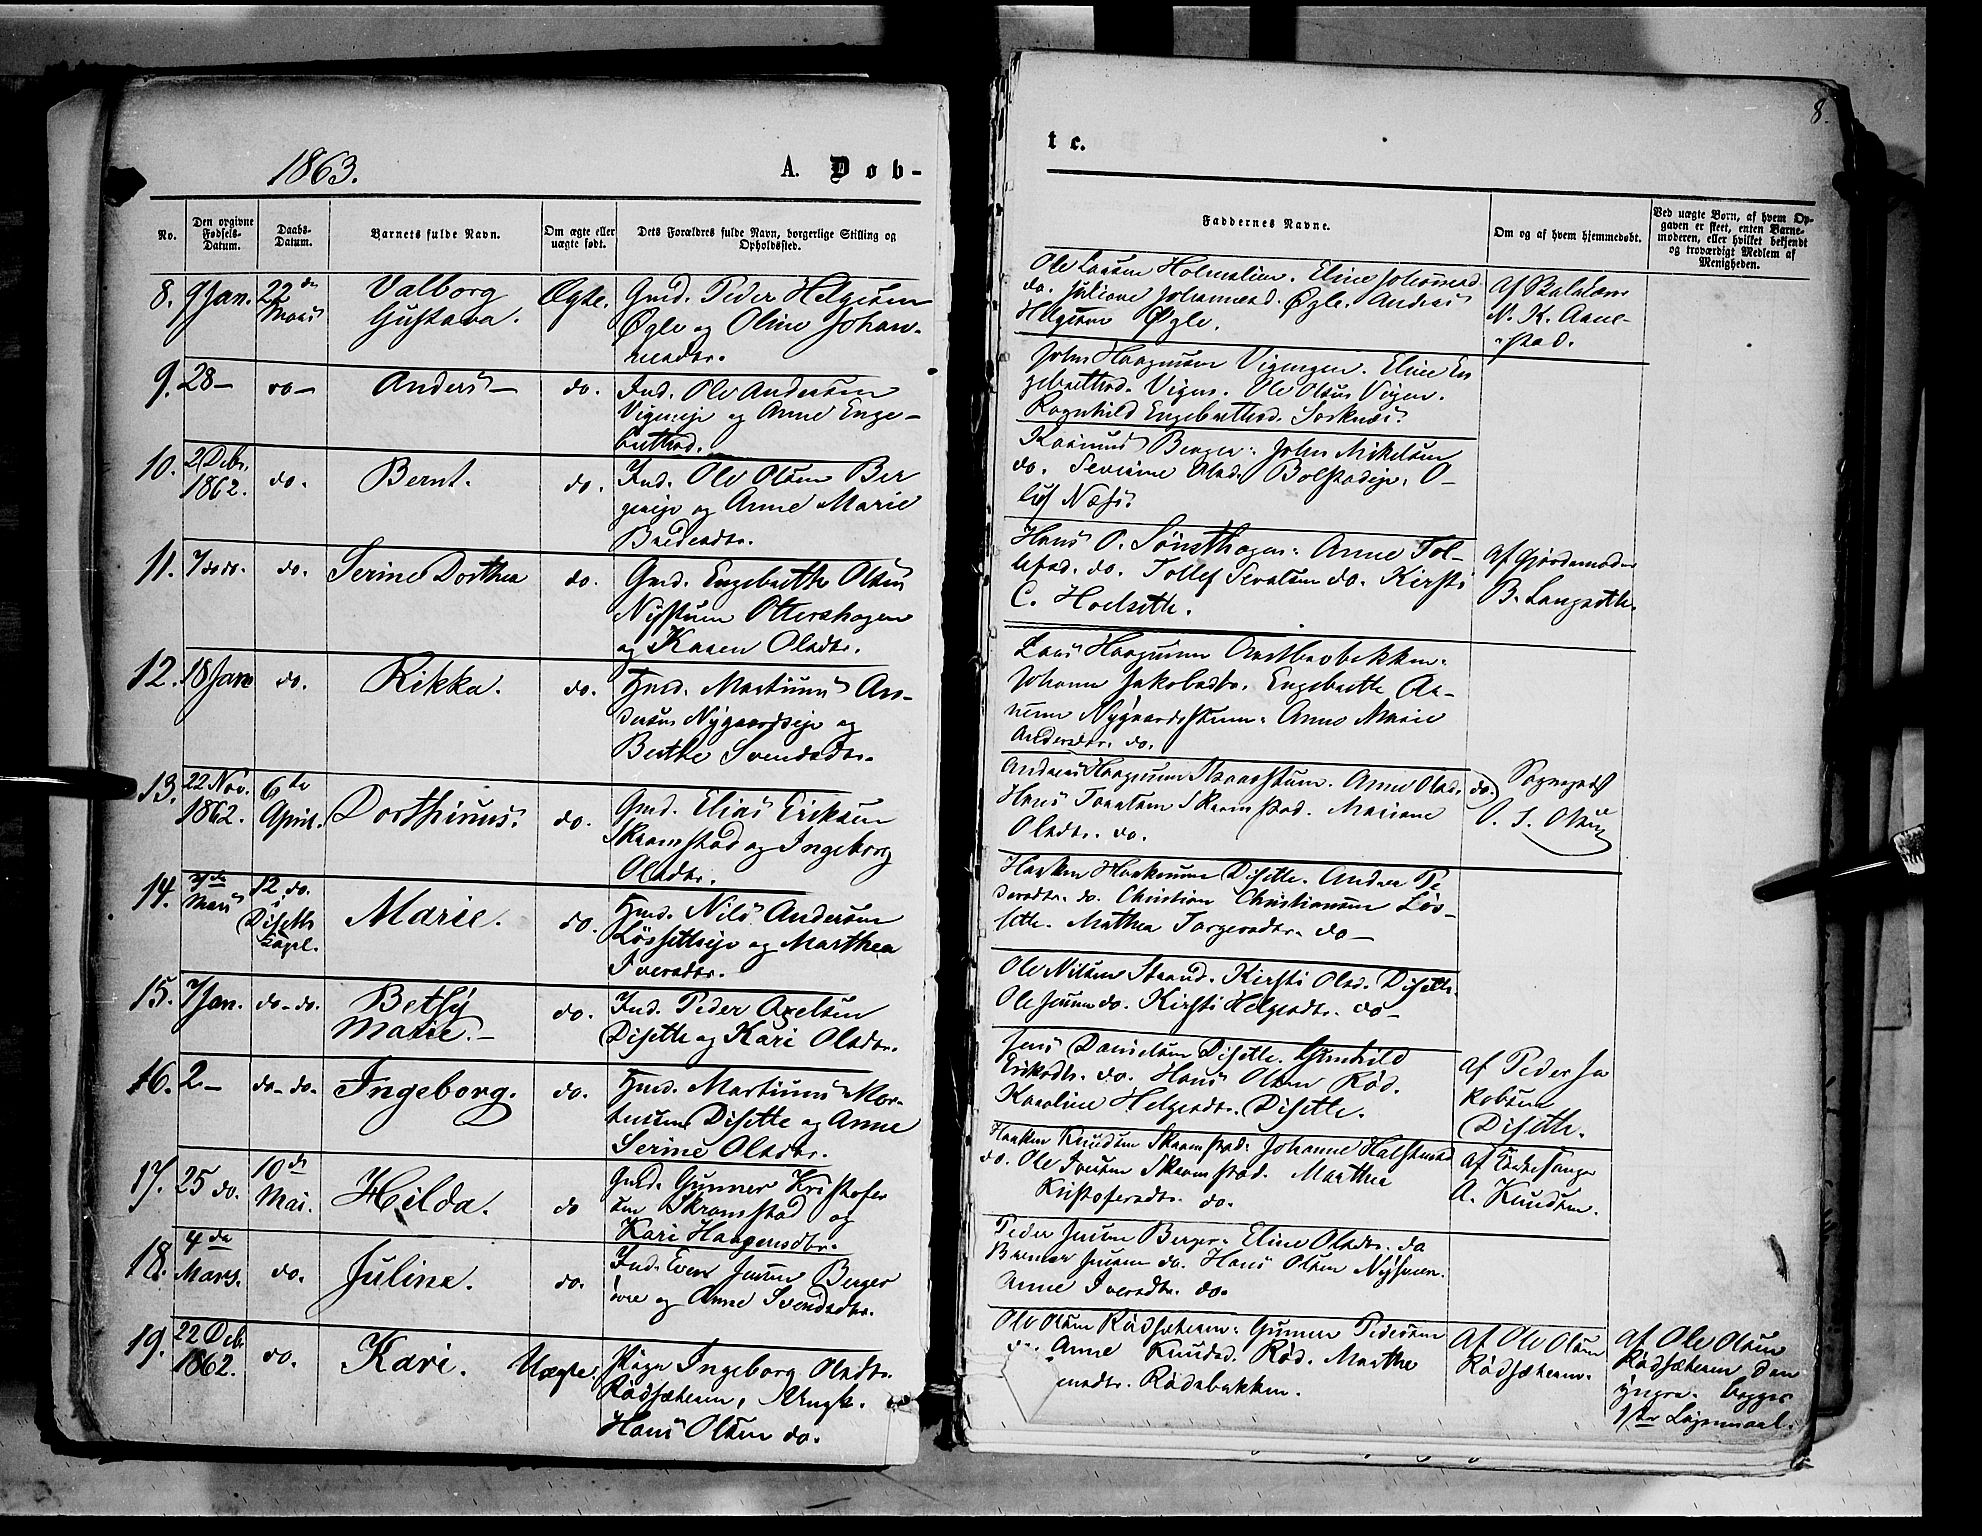 8.
1863.
A. Dob-
t c.
No.
Den opgivne Fødsels-Datum.
Daabs-Datum.
Barnets fulde Navn.
Om ægte eller uægte født.
Dets Forældres fulde Navn, borgerlige Stilling og Opholdssted.
Faddernes Navne.
Om og af hvem hjemmedøbt.
Ved uægte Børn, af hvem Opgaven er skeet, enten Barnemoderen, eller hvilket bekjendt og troværdigt Medlem af Menigheden.
8. 9 Jan. 22de Valborg Ægte. Gmd. Peder Helgesen
Marts Gustava. Øgle og Oline Johan-
nesdtr.
Ole Larsen Holmslien. Eline Johannesd.
do. Juliane Johannesd. Øgle. Andreas
Helgesen Øgle.
af
N. K. Aane-
stad.
9. 28 – do – Anders – do. Ind. Ole Andersen
Vigeneje og Anne Enge-
brethsd.
John Haagensen Vigengen. Eline En
gebrethsd. Vigen. Ole Olsen Vigen.
Ragnhild Engebrethsd. Sorknes.
10. 2 Debr. 1862. do. Bernt. do. Ind. Ole Olsen Ber
gereje og Anne Marie
Berger. John Mikelsen
do. Olsd. Bolstadeje. O-
luf Næss.
11. 7 do do. do. Serine Dorthea do. Gmd. Engebreth Olsen
Nystuen Ottershagen
og Karen Olsdtr.
Hans O. Sønsthagen. Anne Tol-
lefsd. do. Tollef do. Kirsti
C. Hoelseth.
af Gjordemoder
B. Langseth.
12. 18 Jan do. Rikka. do. Hmd. Martinus An-
dersen Nygaardseje og
Berthe Svendsdtr.
Lars Haagensen
Johanne Jakobsdtr. Engebreth
Nygaardsstuen. Anne Marie
Andersdtr. do.
13. 22 Nov. 1862. 6te April. Dorthinus. do. Gmd. Elias Eriksen
Skramstad og Ingeborg
Olsdtr.
Andreas Haagensen. Anne Olsd. do.
Hans Skramstad. Mariane
Olsdtr. do.
Sognepræst
O. S. Olsen
14. 7de Mars 12 do. i Diseths Capel. Marie. do. Hmd. Nils Andersen
Løssetteje og Marthea
Iversdtr.
Haaken Haakensen Disette. Andrea Pe
dersdtr. do. Christian Christiansen Løs-
sette. Mathea Torgersdtr. do –
15. 7 Jan. do–do. Betsy do. Ind. Peder Axelsen
Marie. – Disette og Kari Olsdtr.
Ole Nilsen Strand. Kirsti Olsd. Disette.
Ole Jensen do. Kirsti Helgesdtr. do –
16. 2 – do–do. Ingeborg. do. Hmd. Martinus Mor-
tensen Disette og Anne
Serine Olsdtr.
Jens Danielsen Disette. Gunhild
Eriksdtr. do. Hans Olsen Rød.
Karoline Helgesdtr. Disette.
af Peder Ja
kobsen
Disette.
17. 25 do. 10de Mai. Hilda. do Gmd. Gunner Kristofer
sen Skramstad og
Kari Haagensdtr.
Haaken Knudsen Skramstad. Johanne Halstensd.
do. Ole Iversen Skramstad. Marthea
Kristofersdtr. do.
af Kirkesanger
A. Knudsen.
18. 4de Mars. do. Juline. do. Ind. Even Jensen Berger
øvre og Anne Svendsdtr.
Peder Jensen Berger. Eline Olsdtr. do
Berner Jensen do. Hans Olsen Nyhuen.
Anne Iversdtr. do.
19. 22 Deb. 1862. do. Kari. Uægte. Pige Ingeborg Olsdtr.
Rødsæteren, Ungk.
Hans Olsen do.
Ole Olsen Rødsæteren. Gunner Pedersen
do. Anne Knudsd. Rød. Marthe
Rødsbakken.
af Ole Olsen
Rødsæteren.
af Ole Olsen
Rødsæteren den
yngre. begges
1ste Lejermaal.